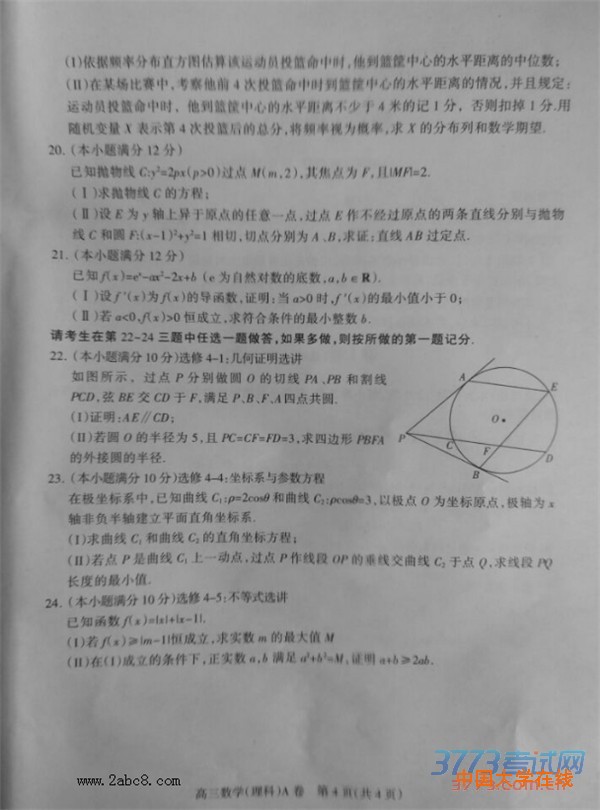 (Ⅰ)依据频率分布直方图估算该运动员投篮命中时,他到篮筐中心的水平距离的中位数;
(Ⅱ)在某场比赛中,考察他前4次投篮命中时到篮筐中心的水平距离的情况,并且规定:
运动员投篮命中时,他到篮筐中心的水平距离不少于4米的记1分,否则扣掉1分.用
随机变量X表示第4次投篮后的总分,将频率视为概率,求X的分布列和数学期望.
20.(本小题满分12分)
已知抛物线C:y²=2px(p>0)过点M(m,2),其焦点为F,且|MF|=2.
(Ⅰ)求抛物线C的方程;
(Ⅱ)设E为y轴上异于原点的任意一点,过点E作不经过原点的两条直线分别与抛物
线C和圆F:(x-1)²+y²=1相切,切点分别为A、B,求证:直线AB过定点.
21.(本小题满分12分)
已知f(x)=eˣ-ax²-2x+b(e为自然对数的底数,a,b∈R).
(Ⅰ)设f′(x)为f(x)的导函数,证明:当a>0时,f′(x)的最小值小于0;
(Ⅱ)若a<0,f(x)>0恒成立,求符合条件的最小整数b.
请考生在第22~24三题中任选一题做答,如果多做,则按所做的第一题记分.
22.(本小题满分10分)选修4-1:几何证明选讲
如图所示,过点P分别做圆O的切线PA、PB和割线
PCD,弦BE交CD于F,满足P、B、F、A四点共圆.
(Ⅰ)证明:AE∥CD;
(Ⅱ)若圆O的半径为5,且PC=CF=FD=3,求四边形PBFA
的外接圆的半径.
A
E
O
P
C
F
D
B
23.(本小题满分10分)选修4-4:坐标系与参数方程
在极坐标系中,已知曲线C₁:ρ=2cosθ和曲线C₂:ρcosθ=3,以极点O为坐标原点,极轴为x
轴非负半轴建立平面直角坐标系.
(Ⅰ)求曲线C₁和曲线C₂的直角坐标方程;
(Ⅱ)若点P是曲线C₁上一动点,过点P作线段OP的垂线交曲线C₂于点Q,求线段PQ
长度的最小值.
24.(本小题满分10分)选修4-5:不等式选讲
已知函数f(x)=|x|+|x-1|.
(Ⅰ)若f(x)≥|m-1|恒成立,求实数m的最大值M
(Ⅱ)在(Ⅰ)成立的条件下,正实数a,b满足a²+b²=M,证明a+b≥2ab.
3773考试网
www.2abc8.com
中国大学在线
高三数学(理科)A卷 第4页(共4页)